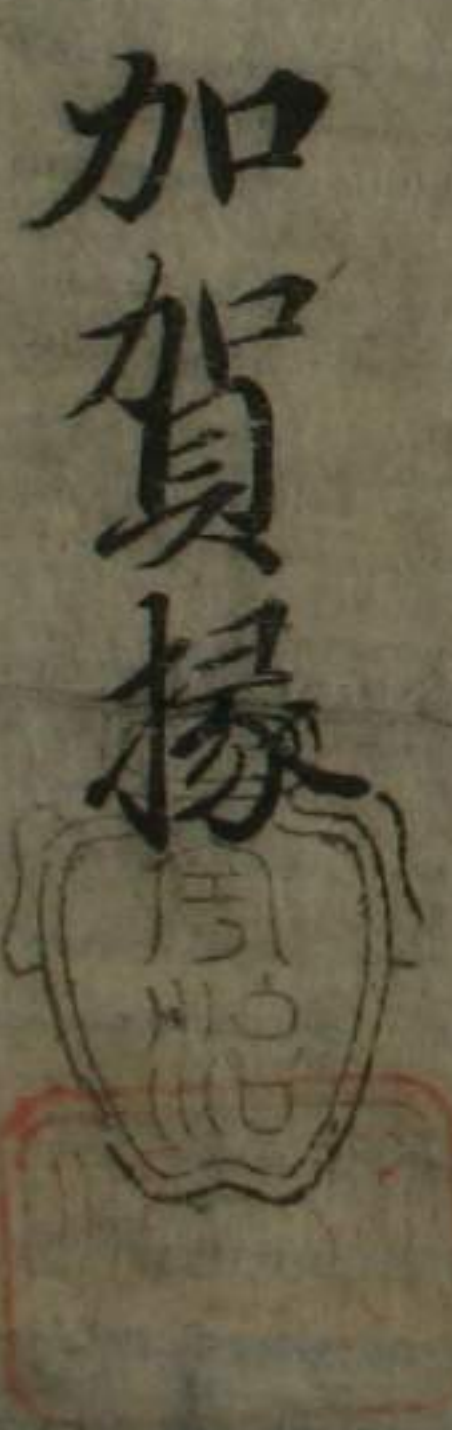 加賀掾